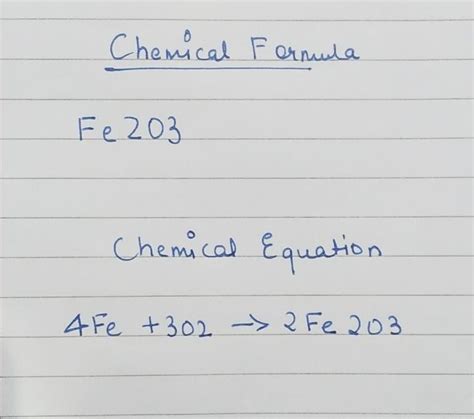 Chemical Formula
Fe203
Chemical Equation
4Fe +302 → 2Fe203